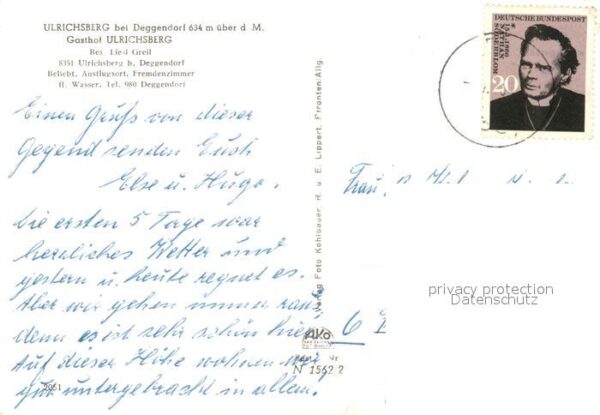 ULRICHSBERG bei Deggendorf 634 m über d. M.
Gasthof ULRICHSBERG
Bes. Liesl Greil
8351 Ulrichsberg b. Deggendorf
Beliebt. Ausflugsort, Fremdenzimmer
fl. Wasser, Tel. 980 Deggendorf
Einen Gruß von dieser
Gegend senden Euch
Else u. Hugo.
Die ersten 5 Tage war
herrliches Wetter und
gestern u. heute regnet es.
Aber wir gehen immer raus
denn es ist sehr schön hier.
Auf dieser Höhe wohnen wir
gut untergebracht in allem.
2051
Verlag Foto Kohlbauer R. u. E. Lippert, Pfronten/Allg.
AKO
Best. Nr
N 1562 2
DEUTSCHE BUNDESPOST
NATHAN
SÖDERBLOM
* 15.1.1866
20
Frau
6
privacy protection
Datenschutz